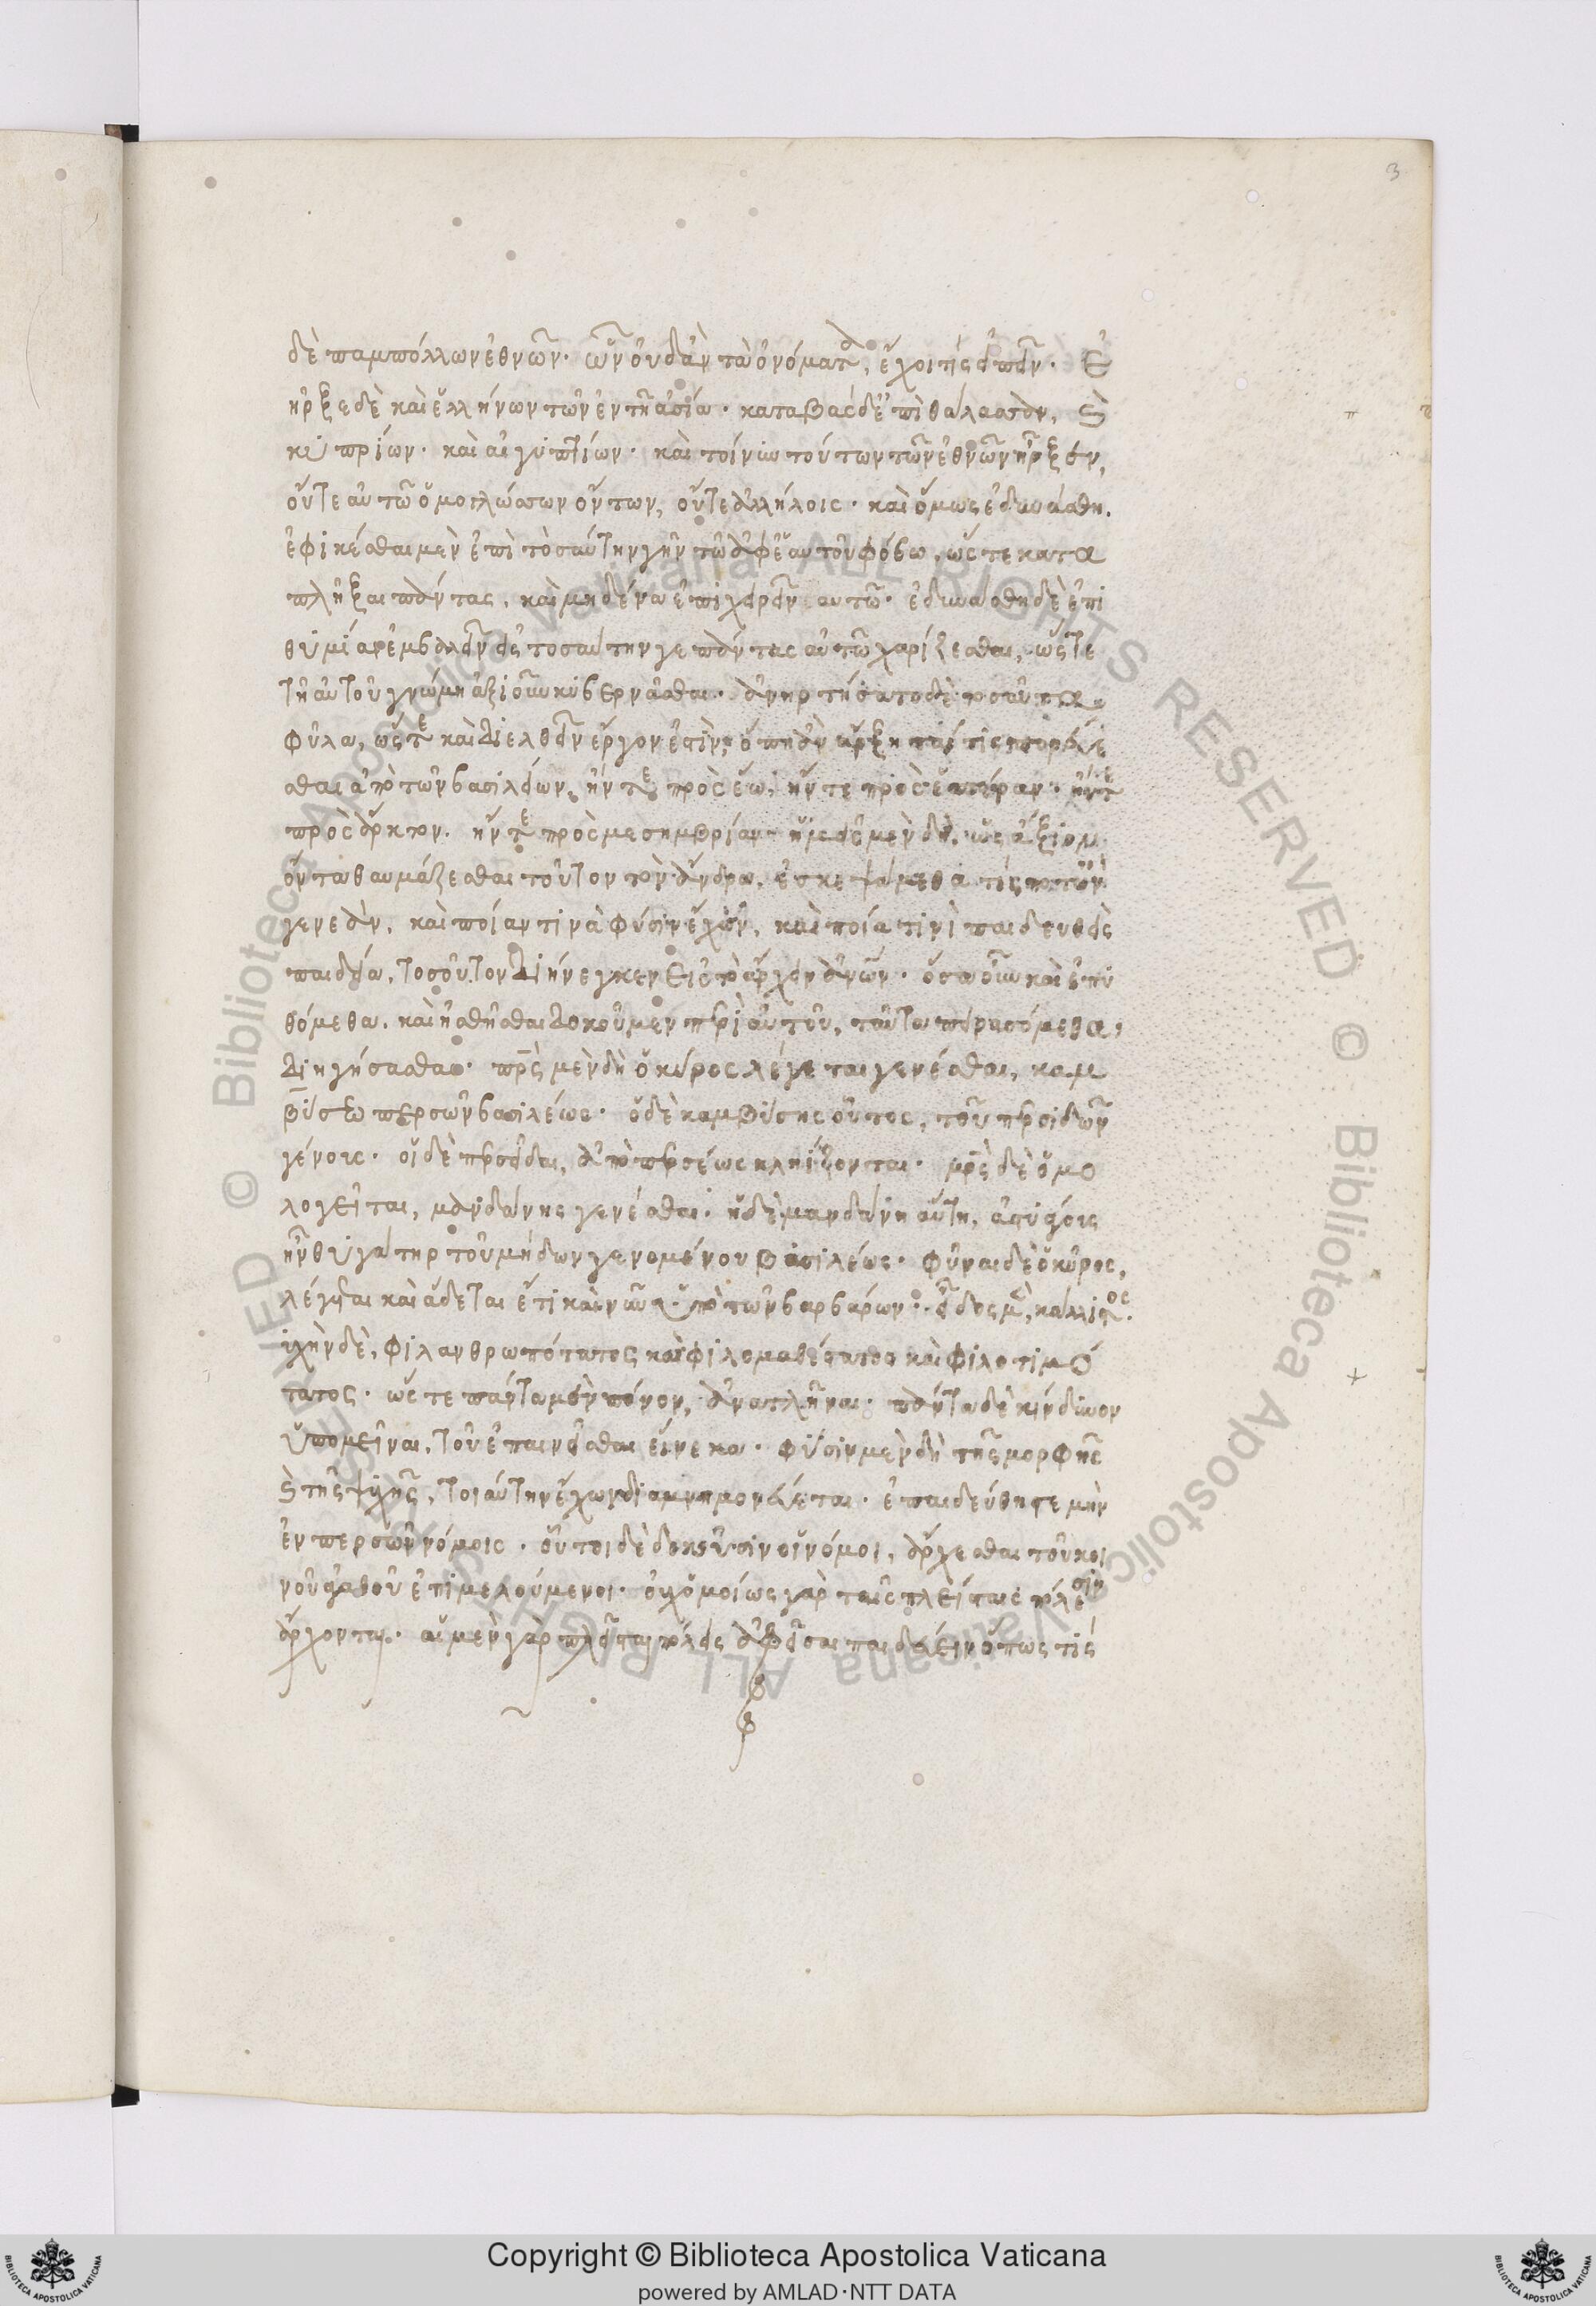 3
δὲ παμπόλλων ἐθνῶν· ὧν οὐδ' ἂν τὰ ὀνόματα, ἔχοι τίς εἰπεῖν· ἐ
πῆρξε δὲ καὶ ἑλλήνων τῶν ἐν τῆ ἀσία· καταβὰς δ' ἐπὶ θάλασσαν, καὶ
κυπρίων· καὶ αἰγυπτίων· καὶ τοίνυν τούτων τῶν ἐθνῶν ἦρξεν,
οὔτε αὐτῶ ὁμογλώσσων ὄντων, οὔτε ἀλλήλοις· καὶ ὅμως ἐδυνάσθη.
ἐφικέσθαι μὲν ἐπὶ τοσαύτην γῆν τῶ ἀφ' ἑαυτοῦ φόβω, ὥστε κατα
πλῆξαι πάντας, καὶ μηδένα ἐπιχειρεῖν αὐτῶ· ἐδυνάσθη δὲ ἐπι
θυμίαν ἐμβαλεῖν τοσαύτην γε πάντας αὐτῶ χαρίζεσθαι, ὥστε
τῆ αὐτοῦ γνώμη ἀξιοῦν κυβερνᾶσθαι· ἀνηρτήσατο δὲ τοσαῦτα
φῦλα, ὥστε καὶ διελθεῖν ἔργον ἐστὶν, ὅπη ἂν ἄρξηταί τις πορεύε
σθαι ἀπὸ τῶν βασιλείων, ἤν τε πρὸς ἕω, ἤν τε πρὸς ἑσπέραν· ἤν τε
πρὸς ἄρκτον. ἤν τε πρὸς μεσημβρίαν· ἡμεῖς μὲν δὴ, ὡς ἄξιον
ὄντα θαυμάζεσθαι τοῦτον τὸν ἄνδρα, ἐσκεψάμεθα τίς ποτ' ὢν
γενεὰν, καὶ ποίαν τινὰ φύσιν ἔχων, καὶ ποία τινὶ παιδευθεὶς
παιδεία, τοσοῦτον διήνεγκεν εἰς τὸ ἄρχειν ἀνθρώπων· ὅσα οὖν καὶ ἐπυ
θόμεθα. καὶ ἠσθῆσθαι δοκοῦμεν περὶ αὐτοῦ, ταῦτα πειρασόμεθα,
διηγήσασθαι· πατρὸς μὲν δὴ ὁ κῦρος λέγεται γενέσθαι, καμ
βύσου περσῶν βασιλέως· ὁ δὲ καμβύσης οὗτος, τοῦ περσιδῶν
γένους· οἱ δὲ περσεῖδαι, ἀπὸ περσέως κληίζονται· μητρὸς δὲ ὁμο
λογεῖται, μανδάνης γενέσθαι· ἡ δὲ μανδάνη αὕτη, ἀστυάγους
ἦν θυγάτηρ τοῦ μήδων γενομένου βασιλέως· φῦναι δὲ ὁ κῦρος,
λέγεται καὶ ᾄδεται ἔτι καὶ νῦν ὑπὸ τῶν βαρβάρων· εἶδος μὲν, κάλλιστος.
ψυχὴν δὲ, φιλανθρωπότατος καὶ φιλομαθέστατος καὶ φιλοτιμό
τατος· ὥστε πάντα μὲν πόνον, ἀνατλῆναι· πάντα δὲ κίνδυνον
ὑπομεῖναι, τοῦ ἐπαινεῖσθαι εἵνεκα· φύσιν μὲν δὴ τῆς μορφῆς
καὶ τῆς ψυχῆς, τοιαύτην ἔχων διαμνημονεύεται· ἐπαιδεύθη γε μὴν
ἐν περσῶν νόμοις· οὗτοι δὲ δοκοῦσιν οἱ νόμοι, ἄρχεσθαι τοῦ κοι
νοῦ ἀγαθοῦ ἐπιμελούμενοι· οὐχ ὁμοίως γὰρ ταῖς πλείσταις πόλεσιν
ἄρχονται· αἱ μὲν γὰρ πλεῖσται πόλεις ἀφεῖσαι παιδεύειν ὅπως τίς
Copyright © Biblioteca Apostolica Vaticana
powered by AMLAD·NTT DATA